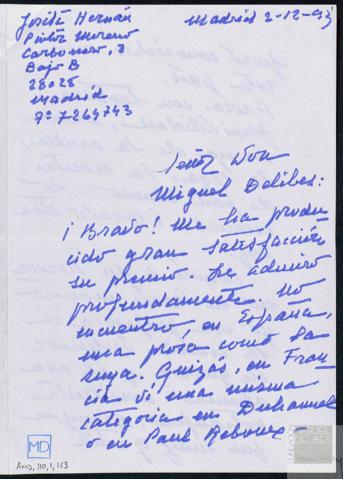 Josita Hernán
Pintor Moreno
Carbonero, 8
Bajo B
28028
Madrid
7264743
Madrid 2-12-93
Señor Don
Miguel Delibes:
¡Bravo! Me ha produ
cido gran satisfacción
su premio. Le admiro
profundamente. No
encuentro, en España,
una prosa como la
suya. Quizás, en Fran
cia vi una misma
categoría en Duhamel
o en Paul
MD
AMD, 110, 1, 153
MIGUEL
DELIBES